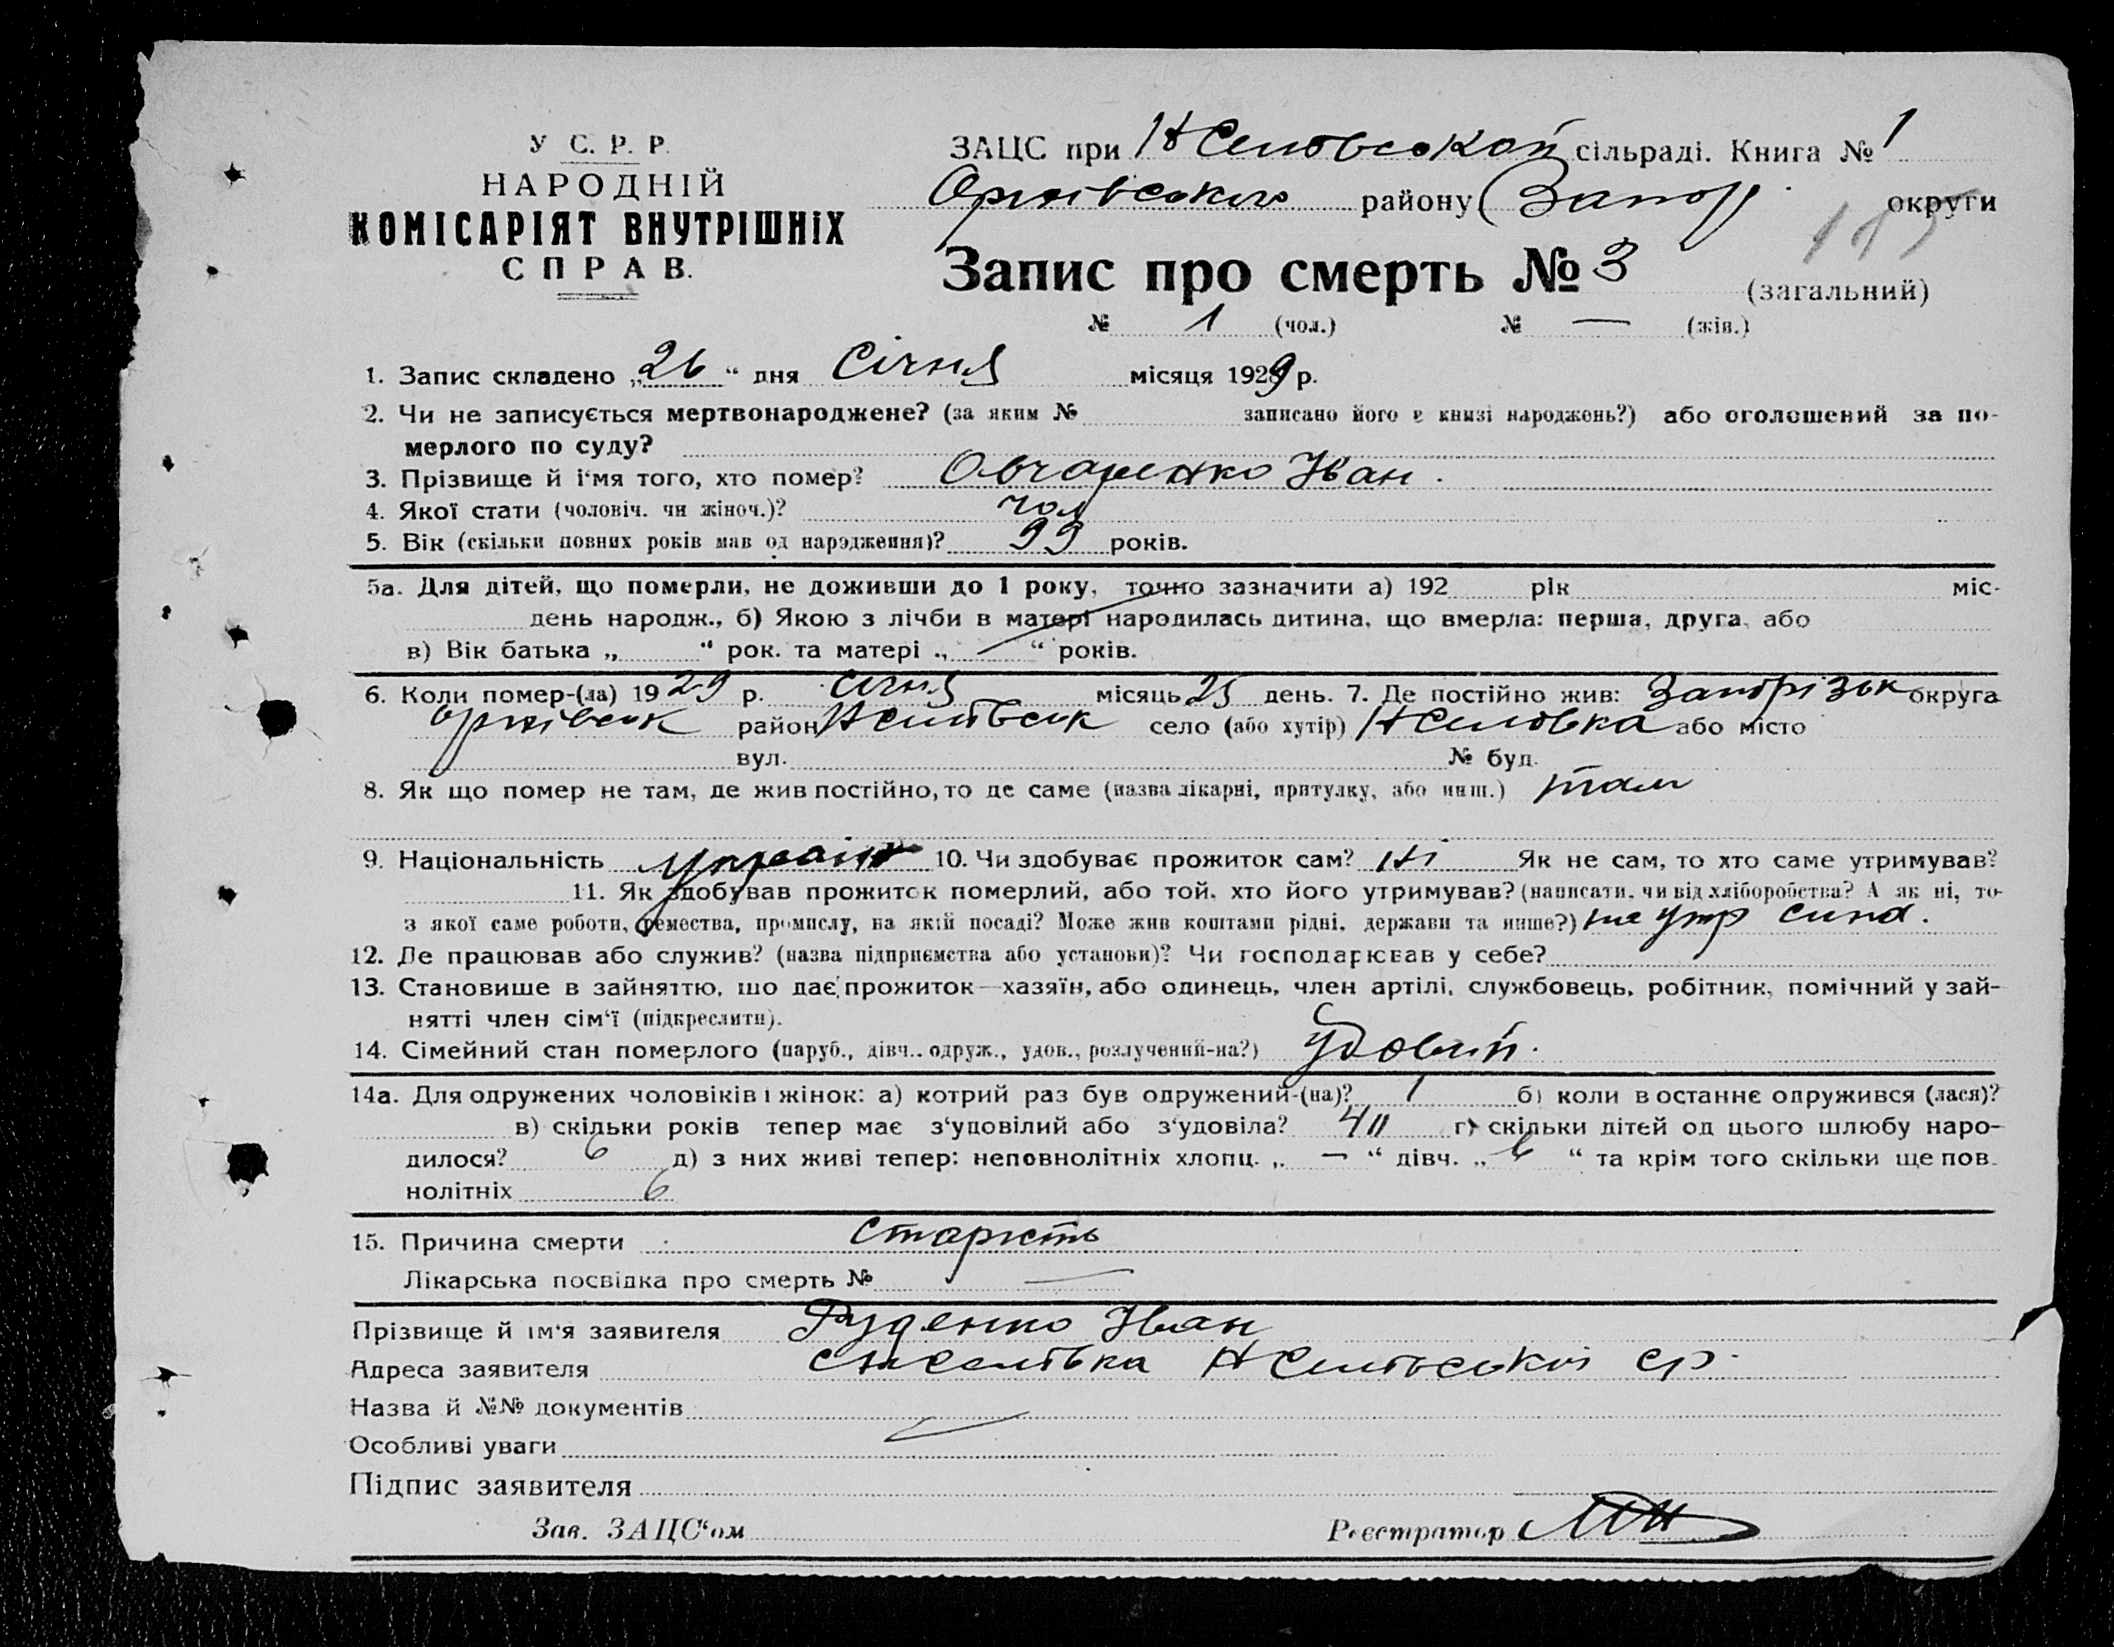 У С. Р. Р.
НАРОДНІЙ
КОМІСАРІЯТ ВНУТРІШНІХ
СПРАВ.
ЗАЦС при сільраді. Книга № 1
району Запор округи
Запис про смерть № 3 (загальний)
№ 1 (чол.) № — (жін.)
1. Запис складено „26“ дня Січня місяця 1929 р.
2. Чи не записується мертвонароджене? (за яким № записано його в книзі народжень?) або оголошений за по-
мерлого по суду?
3. Прізвище й і‘мя того, хто помер? Овчаренко Іван.
4. Якої стати (чоловіч. чи жіноч.)? чол
5. Вік (скільки повних років мав од народження)? 99 років.
5а. Для дітей, що померли, не доживши до 1 року, точно зазначити а) 192 рік міс.
день народж., б) Якою з лічби в матері народилась дитина, що вмерла: перша, друга, або
в) Вік батька „ “ рок. та матері „ — “ років.
6. Коли помер-(ла) 1929 р. січня місяць 25 день. 7. Де постійно жив: Запорізьк округа
район село (або хутір) або місто
вул. № буд.
8. Як що помер не там, де жив постійно, то де саме (назва лікарні, притулку, або инш.) там
9. Національність 10. Чи здобуває прожиток сам? Ні Як не сам, то хто саме утримував?
11. Як здобував прожиток померлий, або той, хто його утримував? (написати, чи від хліборобства? А як ні, то-
з якої саме роботи, ремества, промислу, на якій посаді? Може жив коштами рідні, держави та инше?) на утр сина.
12. Де працював або служив? (назва підприємства або установи)? Чи господарював у себе?
13. Становище в зайняттю, що дає прожиток—хазяїн, або одинець, член артілі, службовець, робітник, помічний у зай-
нятті член сім‘ї (підкреслити).
14. Сімейний стан померлого (паруб., дівч., одруж., удов., розлучений-на?) удовий.
14а. Для одружених чоловіків і жінок: а) котрий раз був одружений-(на)? 1 б) коли востаннє одружився (лася)?
в) скільки років тепер має з‘удовілий або з‘удовіла? г) скільки дітей од цього шлюбу наро-
дилося? 6 д) з них живі тепер: неповнолітніх хлопц. „ — “ дівч. „ “ та крім того скільки ще пов-
нолітніх 6
15. Причина смерти старість
Лікарська посвідка про смерть № —
Прізвище й ім‘я заявителя Руденко Іван
Адреса заявителя
Назва й №№ документів
Особливі уваги
Підпис заявителя
Зав. ЗАЦС‘ом Реєстратор